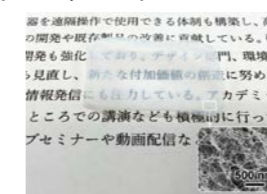 器を遠隔操作で使用できる体制も構築し、
の開発や既存製品の改善に貢献している。
開発も強化しており、デザイン部門、環境
を見直し、新たな付加価値の創造に努め
情報発信にも注力している。アカデミ
ところでの講演なども積極的に行っ
ブセミナーや動画配信な
500nm